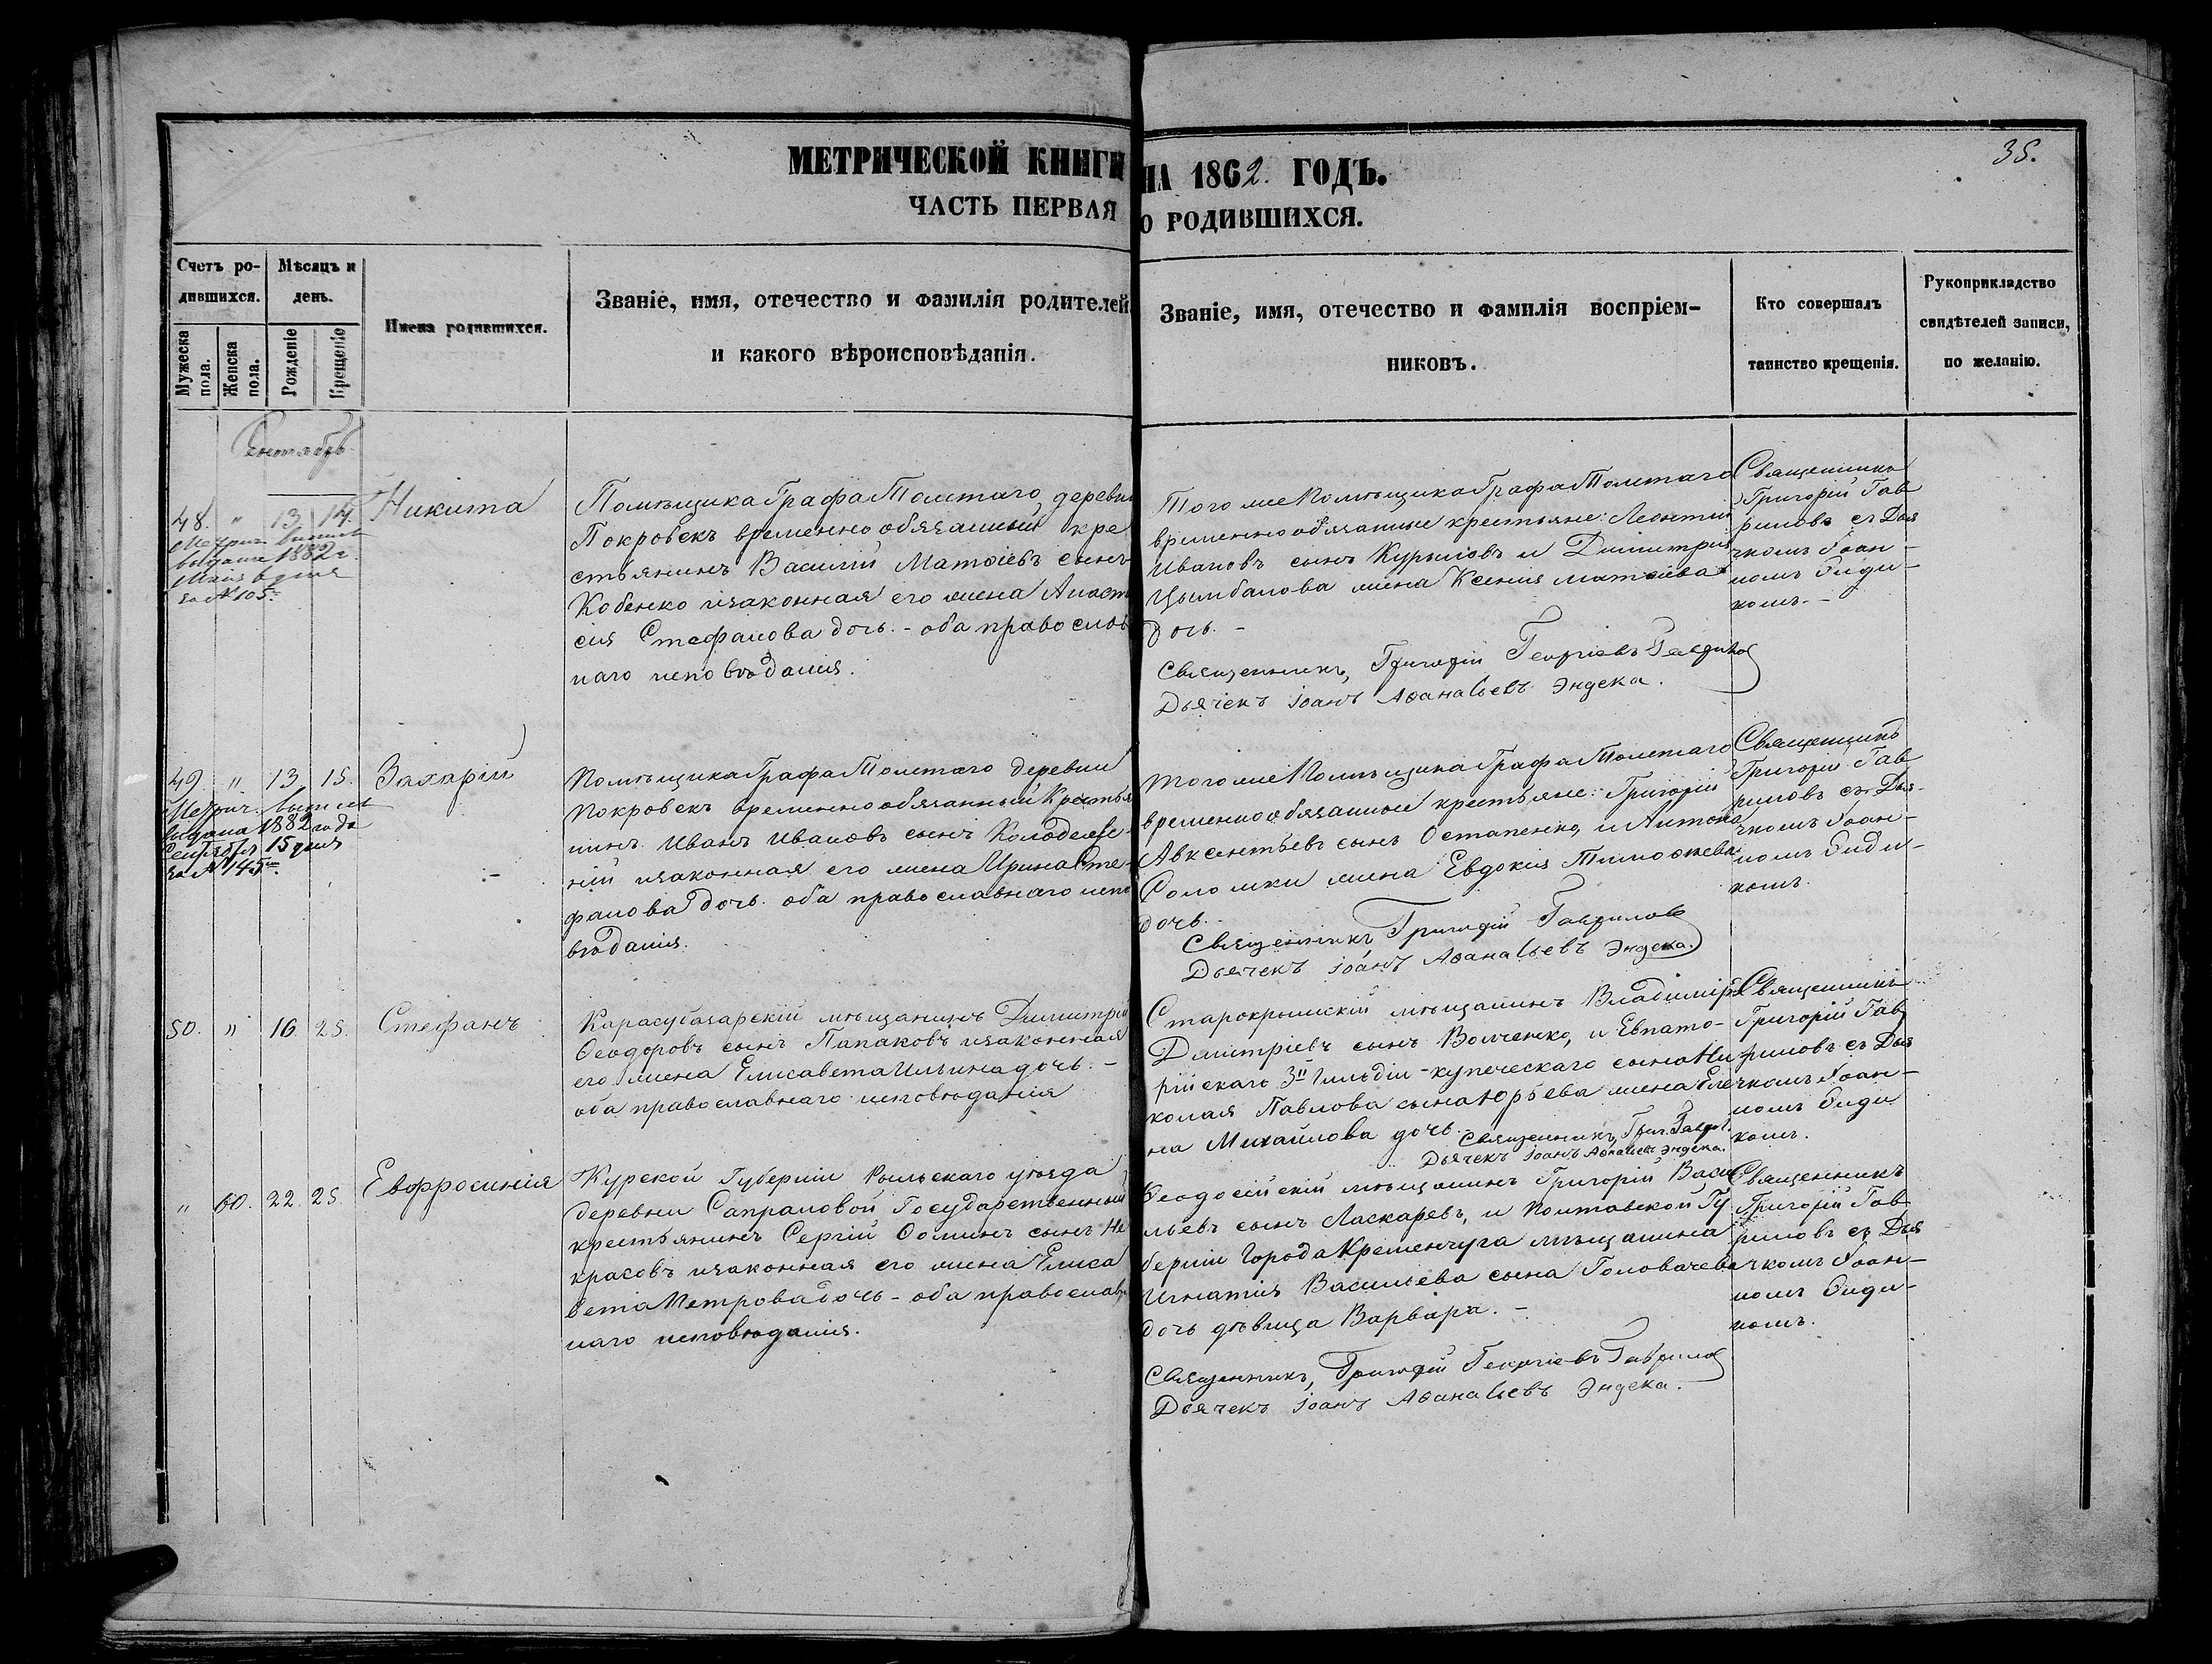 МЕТРИЧЕСКОЙ КНИГИ НА 1862. ГОДЪ.
35.
ЧАСТЬ ПЕРВАЯ О РОДИВШИХСЯ.
Счетъ ро-
дившихся.
Мужеска
пола.
Женска
пола.
Мѣсяцъ и
день.
Рожденіе
Крещеніе
Имена родившихся.
Званіе, имя, отечество и фамилія родителей
и какого вѣроисповѣданія.
Званіе, имя, отечество и фамилія воспріем-
никовъ.
Кто совершалъ
таинство крещенія.
Рукоприкладство
свидѣтелей записи,
по желанію.
Сентябрь
48. " 13 14.
выдана 1882 г.
за № 105.
Никита
Помѣщика Графа Толстаго, деревни
Покровскъ временно обязанный кре
стьянинъ Василій Матѳіевъ сынъ
Кобенко изаконная его жена Анаст
сія Стефанова дочь. - оба православ
наго исповѣданія.
Того же Помѣщика Графа Толстаго
временно обязанные крестьяне: Леонтій
Ивановъ сынъ Куриловъ и Димитрія
Цымбалова жена Ксенія Матѳіева
дочь. -
Священникъ, Григорій Георгіевъ Гаврилов
Дьячекъ Іоанъ Аѳанасьевъ Эндека.
Священникъ
Григорій Гав
риловъ съ Дья
чкомъ Іоан-
номъ Енди-
комъ. -
49. " 13. 15.
Метрич. выпись
выдана 1882 года
Сентября 15 дня
за № 145.
Захарій
Помѣщика Графа Толстаго деревни
Покровскъ временно обязанный Крестья
нинъ Иванъ Ивановъ сынъ
ній изаконная его жена Ирина Сте-
фанова дочь. оба православнаго испо
вѣданія.
Того же Помѣщика Графа Толстаго
временно обязанные крестьяне: Григорій
Авксентьевъ сынъ Остапенко, и Антона
Соломки жена Евдокія Тимоѳеева
дочь.
Священникъ Григорій Гаврилов
Дьячекъ Іоанъ Аѳанасьевъ Эндека.
Священникъ
Григорій Гав
риловъ съ Дья-
чкомъ Іоан-
номъ Енди-
комъ.
50. " 16. 25.
Стефанъ
Карасубазарскій мѣщанинъ Димитрій
Ѳеодоровъ сынъ Папаковъ изаконная
его жена Елисавета Ильина дочь. -
оба православнаго исповѣданія
Старокрымскій мѣщанинъ Владиміръ
Дмитріевъ сынъ Волченко, и Евпато-
рійскаго 3й гильдіи - купеческаго сына Ни
колая Павлова сына Юрьева жена Еле
на Михайлова дочь.
Священникъ, Григ. Гаврил.
Дьячекъ Іоанъ Аѳанасьевъ Эндека.
Священникъ
Григорій Гав
риловъ съ Дья
чкомъ Іоан-
номъ Енди
комъ.
" 60. 22. 25.
Евфросинія
Курской Губерніи Рыльскаго уѣзда
деревни Сапрановой Государственный
крестьянинъ Сергій Ѳоминъ сынъ Не
красовъ изаконная его жена Елиса
вета Петрова дочь - оба православ
наго исповѣданія.
Ѳеодосійскій мѣщанинъ Григорій Васи
льевъ сынъ Ласкаревъ, и Полтавской Гу
берніи города Кременчуга мѣщанина
Игнатія Васильева сына Головачева
дочь дѣвица Варвара. -
Священникъ, Григорій Георгіевъ Гаврилов
Дьячекъ Іоанъ Аѳанасьевъ Эндека.
Священникъ
Григорій Гав
риловъ съ Дья
чкомъ Іоан-
номъ Енди-
комъ.